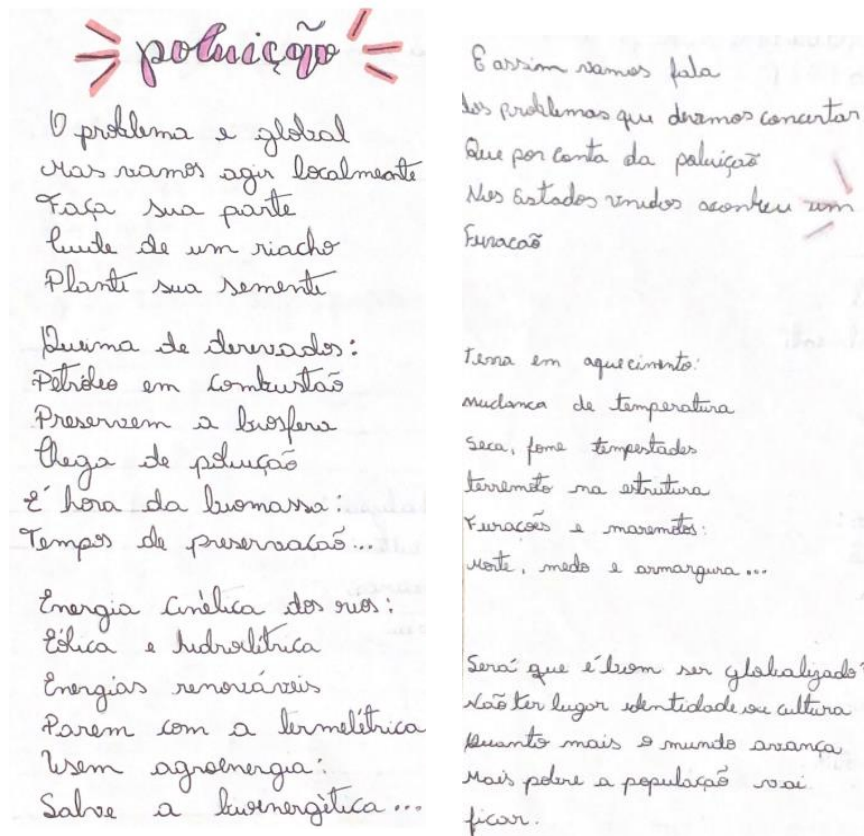 poluição
O problema e global
Mas vamos agir localmente
Faça sua parte
Cuide de um riacho
Plante sua semente
Queima de derevados:
Petróleo em combustaõ
Preservem a biosfera
Chega de poluiçaõ
É hora da biomassa:
Tempos de preservacaõ...
Energia Cinélica dos rios:
Eólica e hidrolítrica
Energias renováveis
Parem com a termelétrica
Usem agroenergia:
Salve a bioenergética...
E assim vamos fala
dos problemas que devemos concertar
Que por conta da poluiçaõ
Nos Estados unidos aconteceu um
Furacaõ
Terra em aquecimento:
Mudanca de temperatura
Seca, fome tempestades
terremoto na estrutura
Furacoẽs e maremotos:
Morte, medo e armargura...
Será que é bom ser globalizado?
Naõ ter lugar identidade ou cultura
Quanto mais o mundo avança
Mais pobre a populaçaõ vai
ficar.